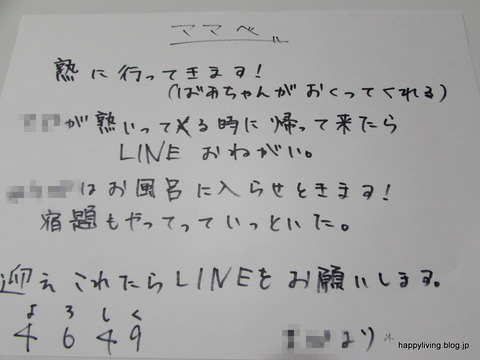 ママへ〃
熟に行ってきます!
(ばあちゃんがおくってくれる)
が熟いってくる時に帰って来たら
LINE おねがい。
はお風呂に入らせときます!
宿題もやってっていっといた。
迎えこれたらLINEをお願いします。
よろしく
4649
より
happyliving.blog.jp